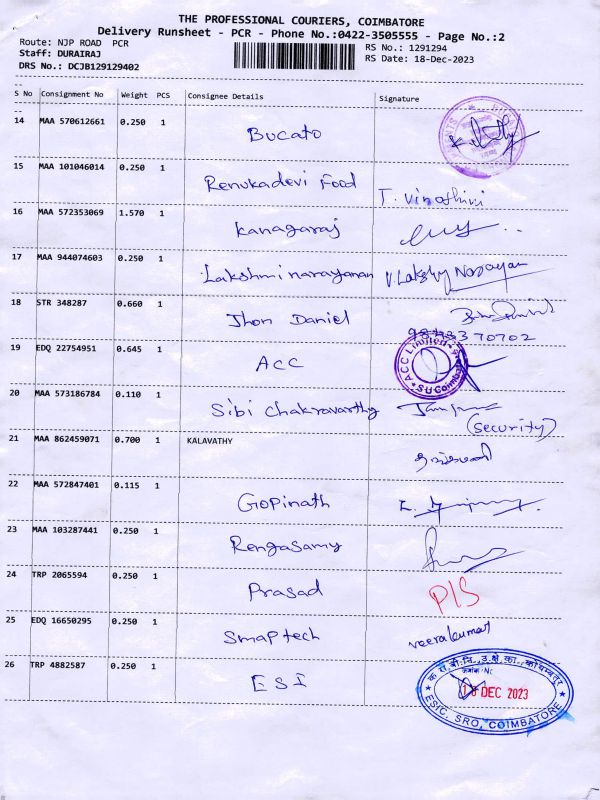 THE PROFESSIONAL COURIERS, COIMBATORE
Delivery Runsheet - PCR - Phone No.:0422-3505555 - Page No.:2
Route: NJP ROAD PCR
RS No.: 1291294
Staff: DURAIRAJ
RS Date: 18-Dec-2023
DRS No.: DCJB129129402
S No Consignment No Weight PCS Consignee Details Signature
14 MAA 570612661 0.250 1 Bucato
15 MAA 101046014 0.250 1 Renukadevi Food T. Vinothini
16 MAA 572353069 1.570 1 Kanagaraj
17 MAA 944074603 0.250 1 Lakshmi narayanan V. Lakshy Narayan
18 STR 348287 0.660 1 Jhon Daniel
9843370702
19 EDQ 22754951 0.645 1 ACC ACC Limited
20 MAA 573186784 0.110 1 Sibi Chakravarthy
(Security)
21 MAA 862459071 0.700 1 KALAVATHY
22 MAA 572847401 0.115 1 Gopinath
23 MAA 103287441 0.250 1 Rengasamy
24 TRP 2065594 0.250 1 Prasad P/S
25 EDQ 16650295 0.250 1 Smaptech veerakumar
26 TRP 4882587 0.250 1 ESI
DEC 2023
ESIC, SRO, COIMBATORE